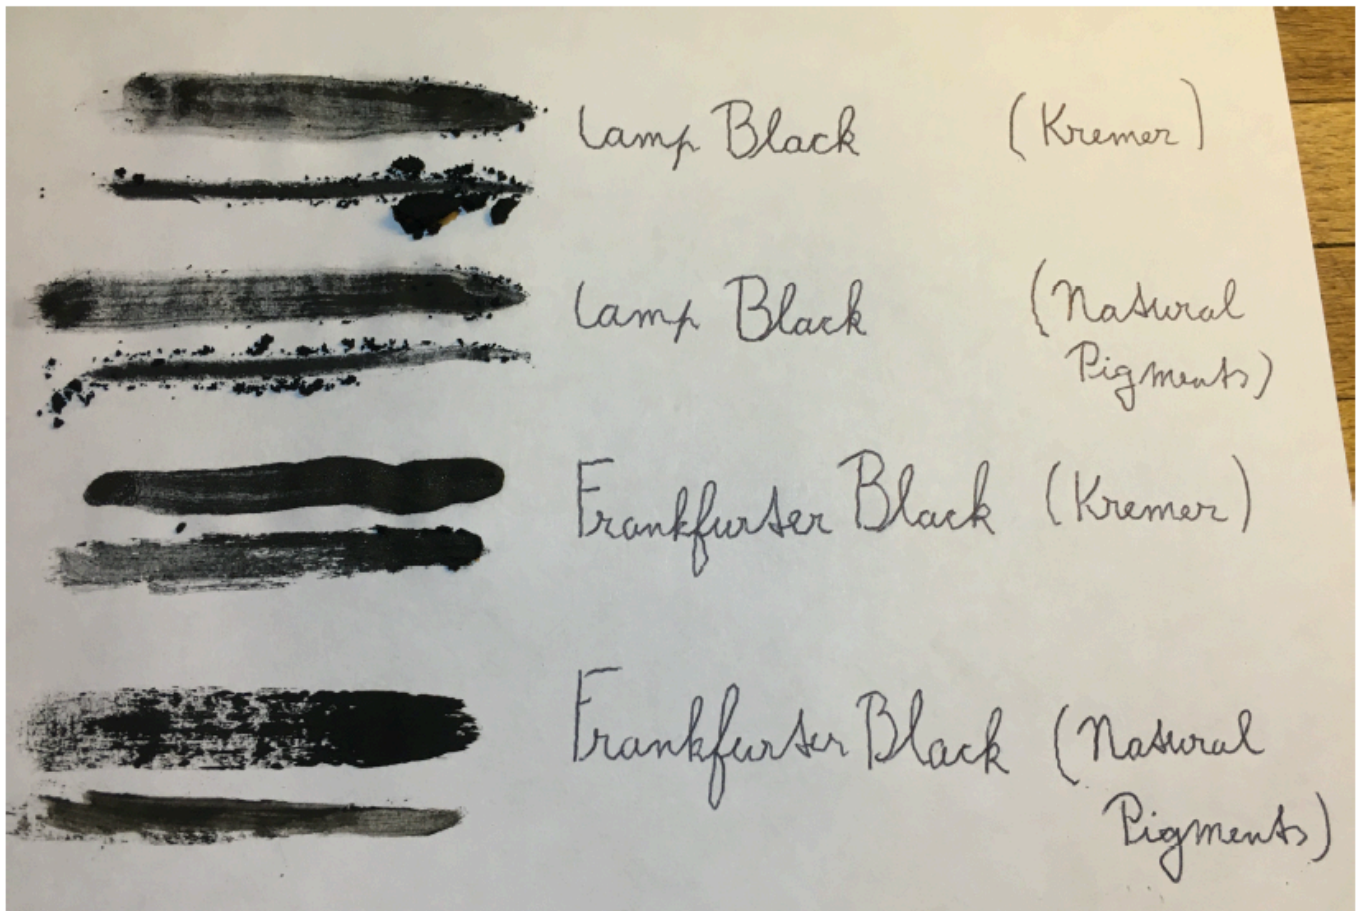 Lamp Black (Kremer)
Lamp Black (Natural
Pigments)
Frankfurter Black (Kremer)
Frankfurter Black (Natural
Pigments)